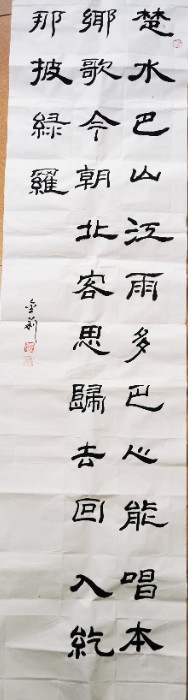 楚水巴山江雨多巴心能唱本
鄉歌今朝北客思歸去回入紇
那披緑羅
金莉